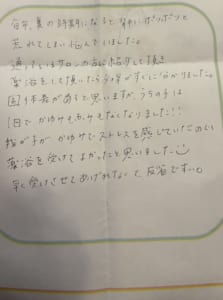 毎年、夏の時期になると背中がポツポツと
荒れてしまい悩んでいました。
通っているサロンの方に紹介して頂き
薬浴をして頂いたら効果がすぐに分かりました。
個体差があると思いますが、うちの子は
1回でかゆみも赤みもなくなりました!!
我が子がかゆみでストレスを感じていたのなら
薬浴を受けてよかったと思いました
早く受けさせてあげれなくて反省です…。